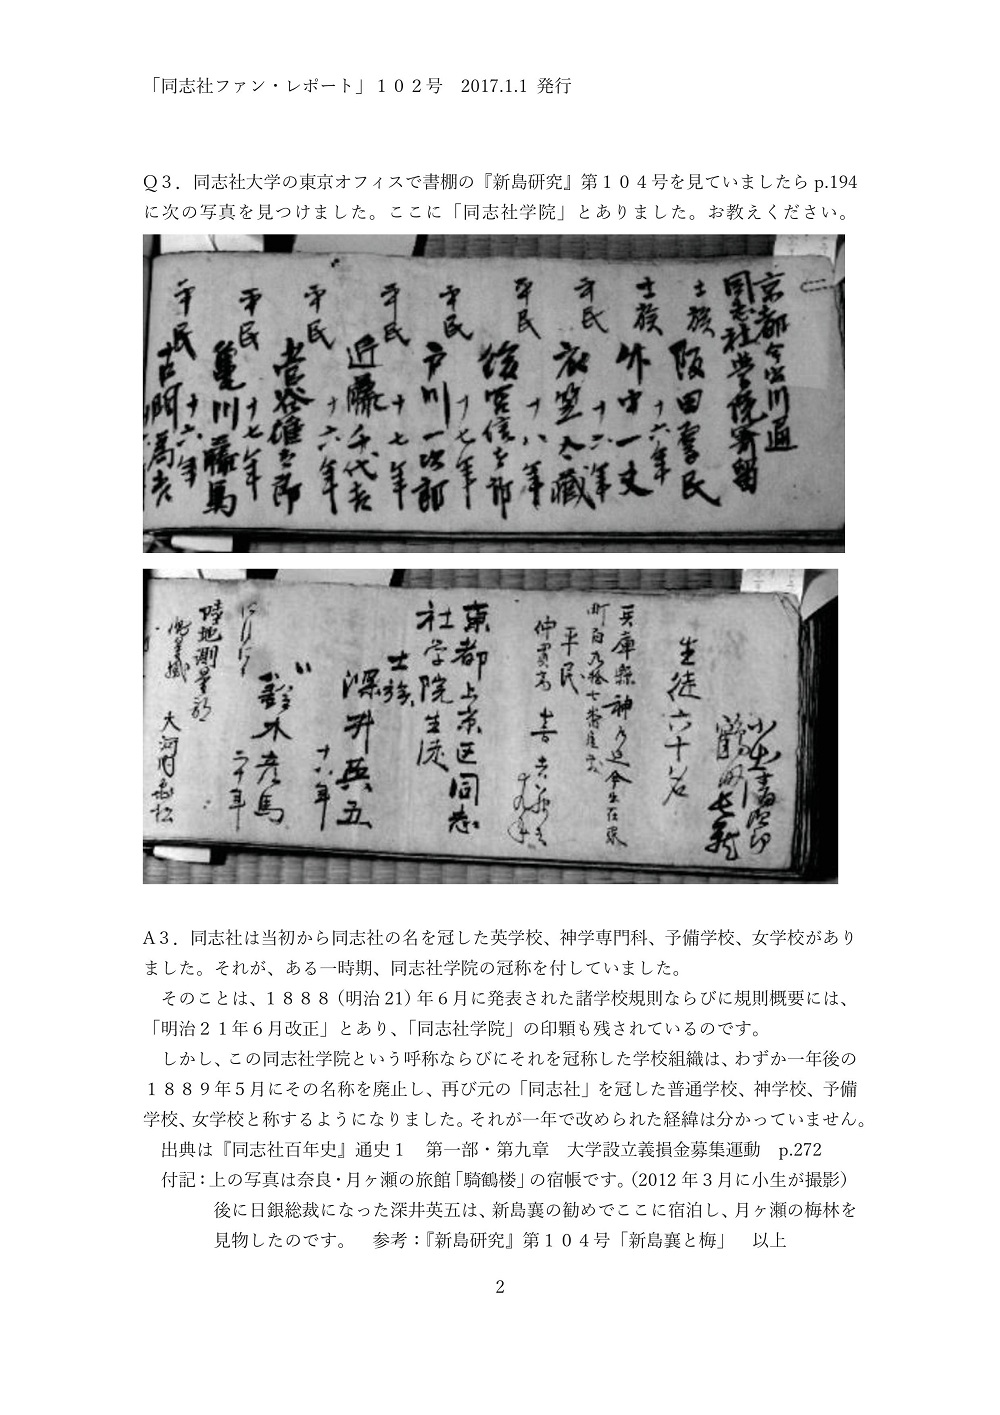 「同志社ファン・レポート」１０２号　2017.1.1 発行
Q３．同志社大学の東京オフィスで書棚の『新島研究』第１０４号を見ていましたら p.194
に次の写真を見つけました。ここに「同志社学院」とありました。お教えください。
京都今出川通
同志社学院寄留
士族 阪田
十六年
士族 外中一丈
平民 衣笠太蔵
十八年
平民
十七年
平民 戸川一次郎
十七年
平民 近藤千代吉
十六年
平民
十七年
平民 亀川藤馬
十六年
平民 古
生徒六十名
兵庫縣神
平民
京都上京区同志
社学院生徒
士族 深井英五
十八年
鈴木彦馬
二十年
陸地測量部
大河内
A３．同志社は当初から同志社の名を冠した英学校、神学専門科、予備学校、女学校があり
ました。それが、ある一時期、同志社学院の冠称を付していました。
そのことは、１８８８（明治 21）年６月に発表された諸学校規則ならびに規則概要には、
「明治２１年６月改正」とあり、「同志社学院」の印顆も残されているのです。
しかし、この同志社学院という呼称ならびにそれを冠称した学校組織は、わずか一年後の
１８８９年５月にその名称を廃止し、再び元の「同志社」を冠した普通学校、神学校、予備
学校、女学校と称するようになりました。それが一年で改められた経緯は分かっていません。
出典は『同志社百年史』通史１　第一部・第九章　大学設立義損金募集運動　p.272
付記：上の写真は奈良・月ヶ瀬の旅館「騎鶴楼」の宿帳です。（2012 年３月に小生が撮影）
後に日銀総裁になった深井英五は、新島襄の勧めでここに宿泊し、月ヶ瀬の梅林を
見物したのです。　参考：『新島研究』第１０４号「新島襄と梅」　以上
2